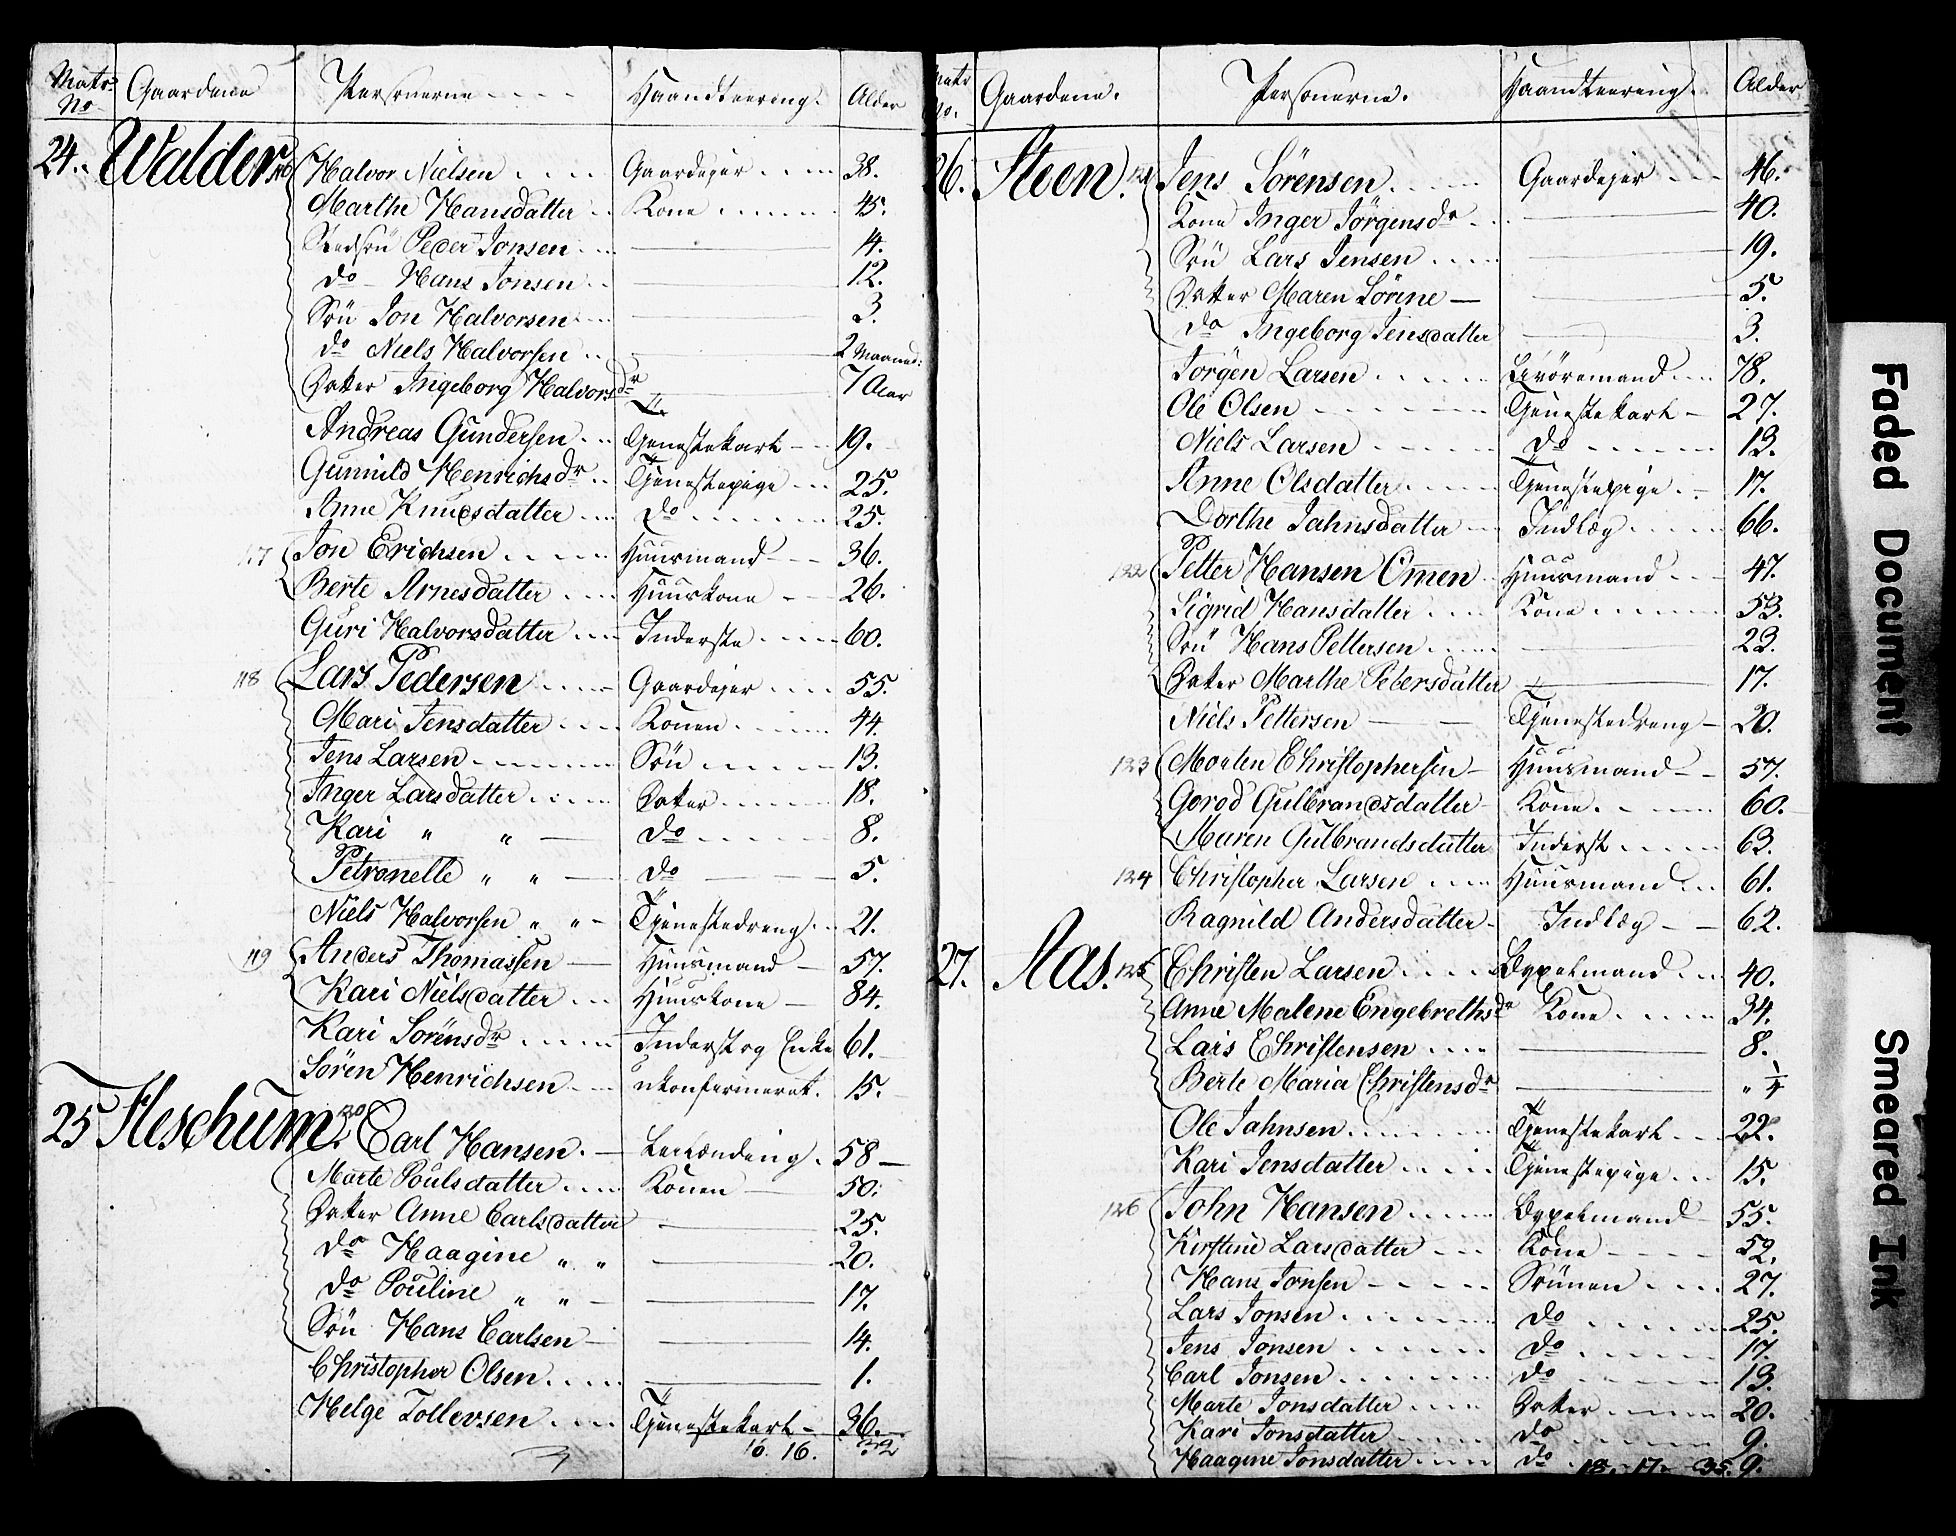 Matr: No Gaardene Personerne Haandteering. Alder
24. Walder 116 Halvor Nielsen Gaardejer 38.
Marthe Hansdatter Kone 45.
Stedsön Peder Jonsen 14.
do Hans Jonsen 12.
Sön Jon Halvorsen 3.
do Niels Halvorsen 2 Maaned:
Datter Ingeborg Halvorsdr 7 Aar
Andreas Gundersen Tjenestekarl 19.
Gunnild Henrichsdr Tjenestepige 25.
Anne Knudsdatter do 25.
117 Jon Erichsen Huusmand 36.
Berte Arnesdatter Huuskone 26.
Guri Halvorsdatter Inderste 60.
118 Lars Pedersen Gaardejer 55.
Mari Jensdatter Konen 44.
Jens Larsen Sön 13.
Inger Larsdatter Datter 18.
Kari " " do 8.
Petronelle " " do 5.
Niels Halvorsen " " Tjenestedreng 21.
119 Anders Thomassen Huusmand 57.
Kari Nielsdatter Huuskone 84.
Kari Sörensdr Inderst og Enke 61.
Sören Henrichsen ukonfirmeret. 15.
25 Fleschum 120 Carl Hansen. Leilænding 58
Marte Poulsdatter Konen 50.
Datter Anne Carlsdatter 25.
do Haagine " " 20.
do Pouline " " 17.
Sön Hans Carlsen 14.
Christopher Olsen 1.
Helge Tollevsen Tjenestekarl 36.
16. 16. 32
Matr No. Gaardene. Personerne. Haandteering. Alder
26. Steen. 121 Jens Sörensen Gaardejer 46.
Kone Inger Jörgensdr 40.
Sön Lars Jensen 19.
Datter Maren Sörine 5.
do Ingeborg Jensdatter 3.
Jörgen Larsen Livöremand 78.
Ole Olsen Tjenestekarl 27.
Niels Larsen do 13.
Anne Olsdatter Tjenestepige 17.
Dorthe Jahnsdatter Indlæg 66.
122 Petter Hansen Omen Huusmand 47.
Sigrid Hansdatter Kone 53.
Sön Hans Pettersen 23.
Datter Marthe Petersdatter 17.
Niels Pettersen Tjenestedreng 20.
123 Morten Christophersen Huusmand 57.
Gorod Gulbrandsdatter Kone 60.
Maren Gulbrandsdatter Inderst 63.
124 Christopher Larsen Huusmand 61.
Ragnild Andersdatter Indlæg 62.
27. Aas. 125 Christen Larsen Bygselmand 40.
Anne Malene Engebrethsdr Kone 34.
Lars Christensen 8.
Berte Maria Christensdr " 1/4
Ole Jahnsen Tjenestekarl 22.
Kari Jensdatter Tjenestepige 15.
126 John Hansen Bygselmand 55.
Kirstine Larsdatter Kone 52.
Hans Jonsen Sönnen 27.
Lars Jonsen do 25.
Jens Jonsen do 17.
Carl Jonsen do 13.
Marte Jonsdatter Datter 20.
Kari Jonsdatter do 9.
Haagine Jonsdatter do 9.
18. 17. 35.
Faded Document
Smeared Ink